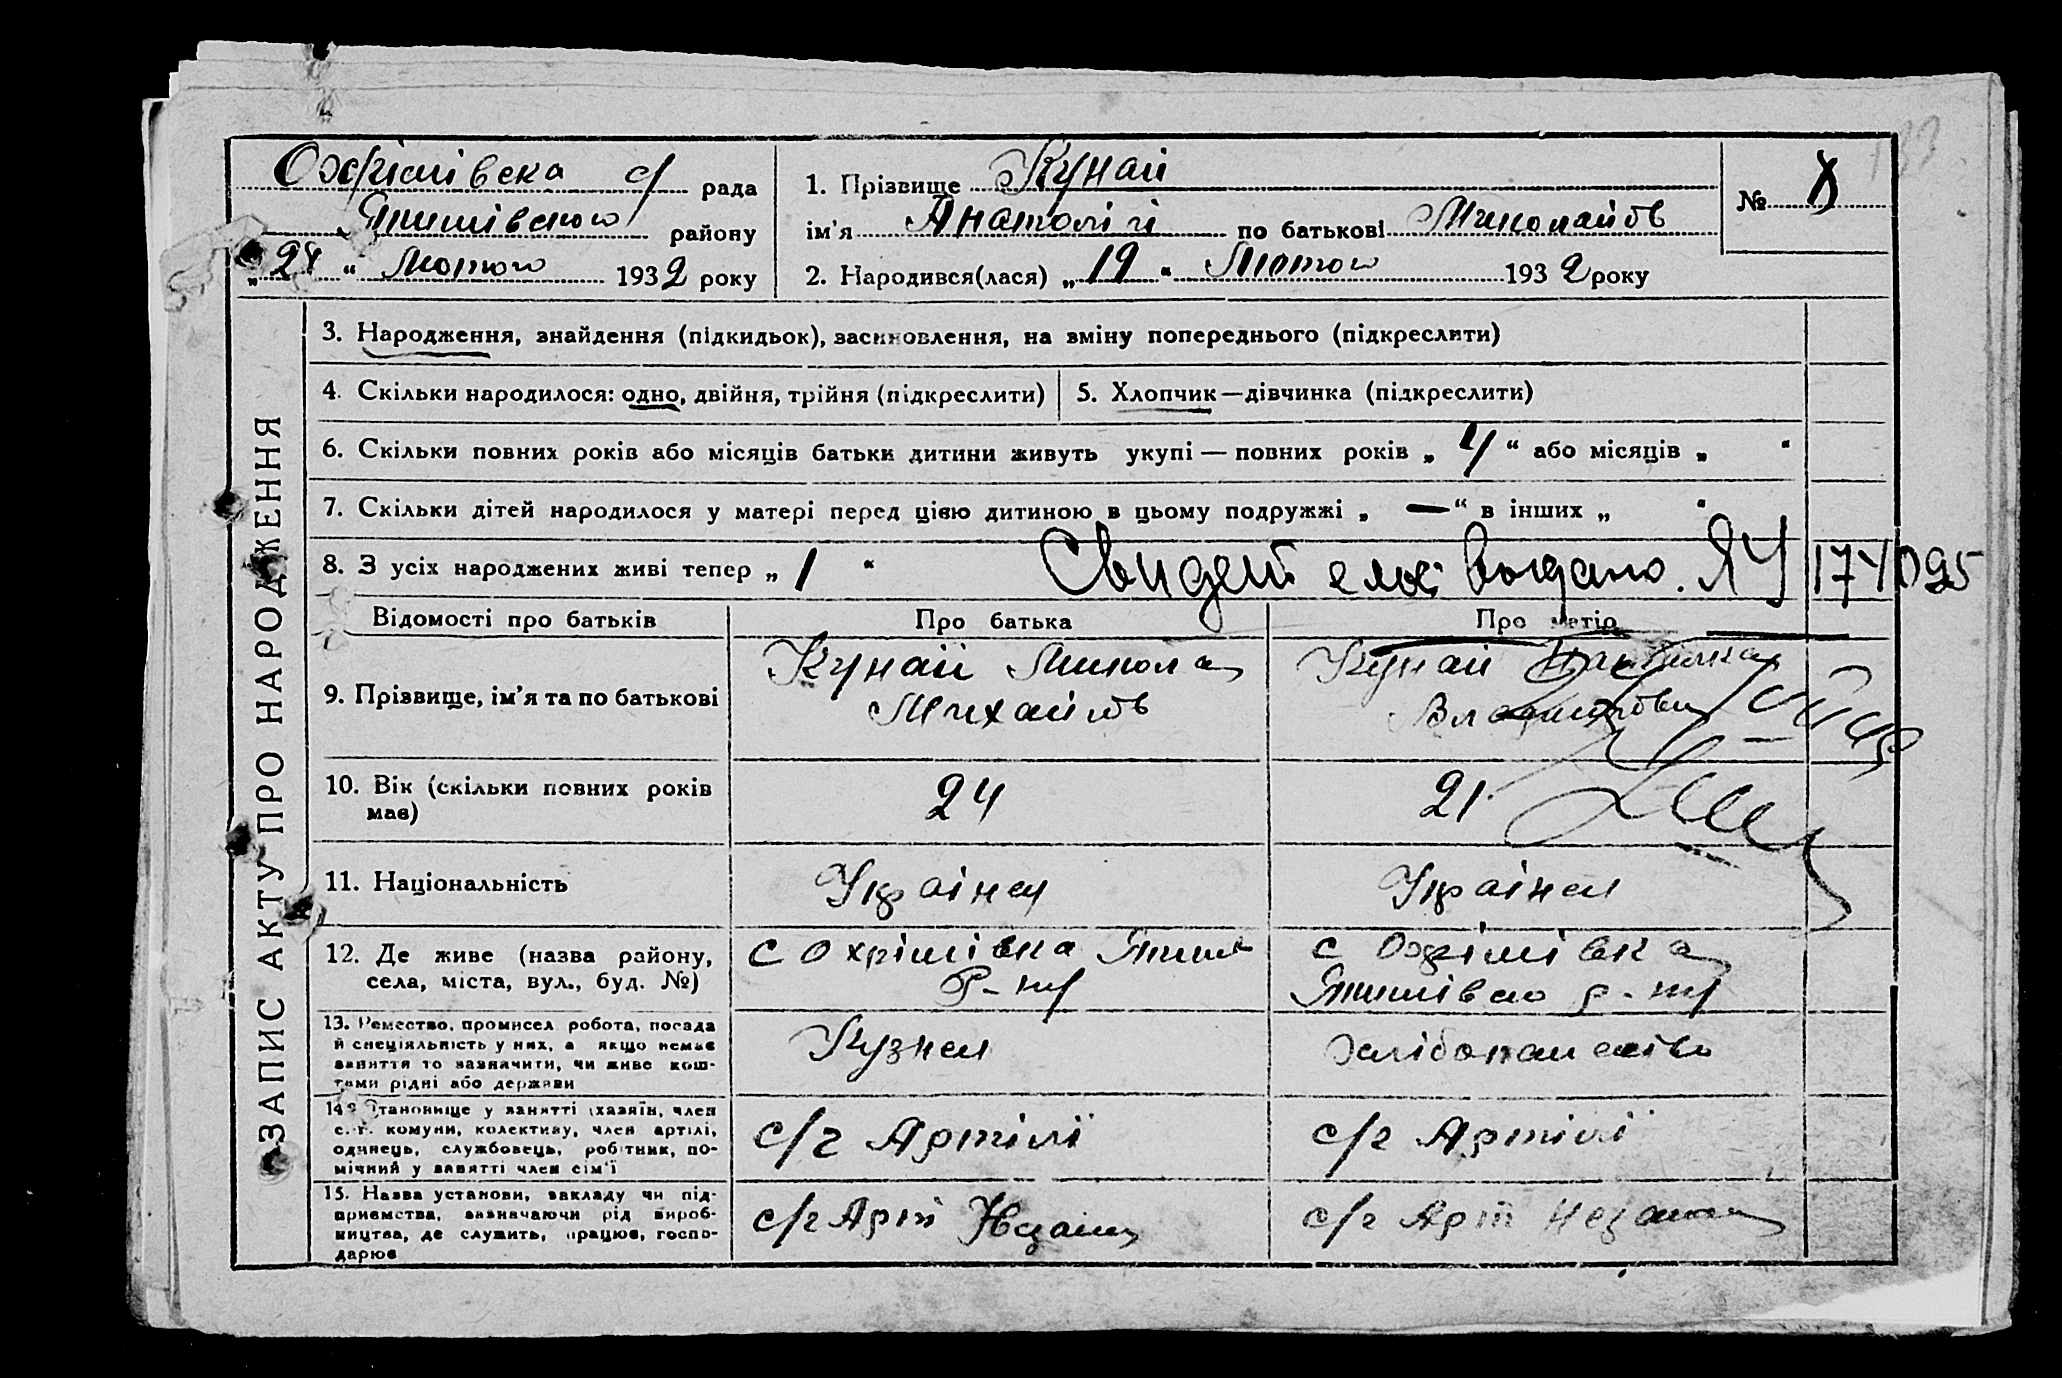 Охрімівска с/ рада
Якимівского району
„ 24 “ Лютого 1932 року
1. Прізвище Кунай
ім'я Анатолій по батькові Миколайов
2. Народився(лася) „ 19 “ Лютого 1932 року
№
ЗАПИС АКТУ ПРО НАРОДЖЕННЯ
3. Народження, знайдення (підкидьок), засиновлення, на зміну попереднього (підкреслити)
4. Скільки народилося: одно, двійня, трійня (підкреслити)
5. Хлопчик — дівчинка (підкреслити)
6. Скільки повних років або місяців батьки дитини живуть укупі — повних років „ 4 “ або місяців „ “
7. Скільки дітей народилося у матері перед цією дитиною в цьому подружжі „ — “ в інших „ “
8. З усіх народжених живі тепер „ 1 “
ЯУ 174095
Відомості про батьків
Про батька
Про матір
9. Прізвище, ім'я та по батькові
Кунай Микола
Михайлов
Кунай
10. Вік (скільки повних років
має)
24
21
11. Національність
Українец
Українец
12. Де живе (назва району,
села, міста, вул., буд. №)
с Охрімівка Яким
Р-ну
с Охрімівка
Якимівско р-ну
13. Ремество, промисел робота, посада
й спеціяльність у них, а якщо немає
заняття то зазначити, чи живе кош-
тами рідні або держави
Кузнец
14. Становище у занятті (хазяїн, член
с.-г. комуни, колективу, член артілі,
одинець, службовець, робітник, по-
мічний у занятті член сім'ї
с/г Артілі
с/г Артілі
15. Назва установи, закладу чи під-
приємства, зазначаючи рід вироб-
ництва, де служить, працює, госпо-
дарює
с/г Арт
с/г Арт